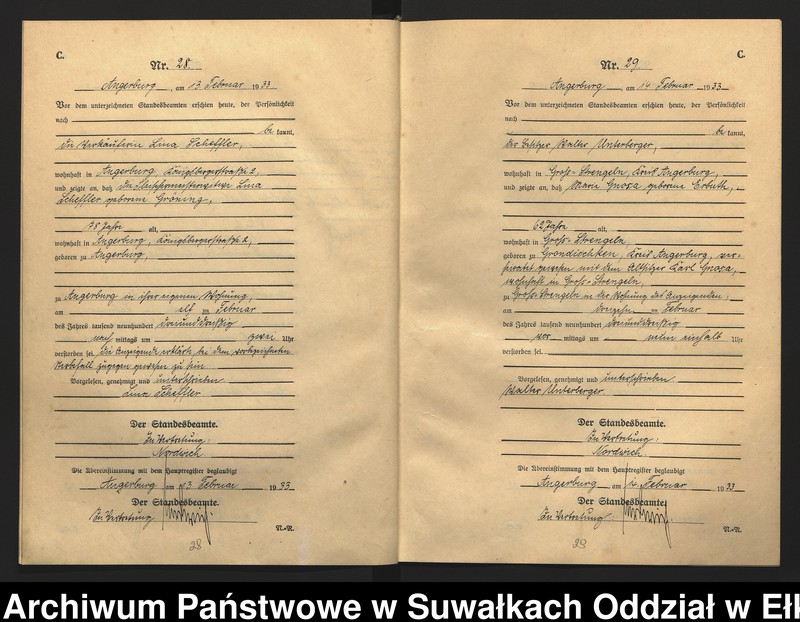 C.
Nr. 28.
Angerburg, am 13 Februar 1933
Vor dem unterzeichneten Standesbeamten erschien heute, der Persönlichkeit
nach
be kannt,
die Verkäuferin Lina Scheffler,
wohnhaft in Angerburg, Königsbergerstraße 2,
und zeigte an, daß die Lina
Scheffler geborene Gröning,
78 Jahre alt,
wohnhaft in Angerburg, Königsbergerstraße 2,
geboren zu Angerburg,
zu Angerburg in ihrer eigenen Wohnung,
am elf ten Februar
des Jahres tausend neunhundert dreiunddreißig
nach mittags um zwei Uhr
verstorben sei. Die Anzeigende erklärt bei dem vorbezeichneten
Sterbefall zugegen gewesen zu sein
Vorgelesen, genehmigt und unterschrieben
Lina Scheffler
Der Standesbeamte.
In Vertretung:
Nordwich
Die Übereinstimmung mit dem Hauptregister beglaubigt
Angerburg am 13 Februar 1933
Der Standesbeamte
In Vertretung
N.-R.
28
C.
Nr. 29
Angerburg, am 14 Februar 1933.
Vor dem unterzeichneten Standesbeamten erschien heute, der Persönlichkeit
nach
be kannt,
der Besitzer Walter Unterberger,
wohnhaft in Groß-Strengeln, Kreis Angerburg,
und zeigte an, daß Marie Gnosa geborene Erbuth,
62 Jahre alt,
wohnhaft in Groß-Strengeln
geboren zu Grondischken, Kreis Angerburg, ver-
heiratet gewesen mit dem Altsitzer Karl Gnosa,
wohnhaft in Groß-Strengeln,
zu Groß-Strengeln in der Wohnung des Anzeigenden,
am dreizehn ten Februar
des Jahres tausend neunhundert dreiunddreißig
vor mittags um neun einhalb Uhr
verstorben sei.
Vorgelesen, genehmigt und unterschrieben
Walter Unterberger
Der Standesbeamte.
In Vertretung:
Nordwich.
Die Übereinstimmung mit dem Hauptregister beglaubigt
Angerburg am 14 Februar 1933
Der Standesbeamte
In Vertretung
N.-R.
29
Archiwum Państwowe w Suwałkach Oddział w Ełk